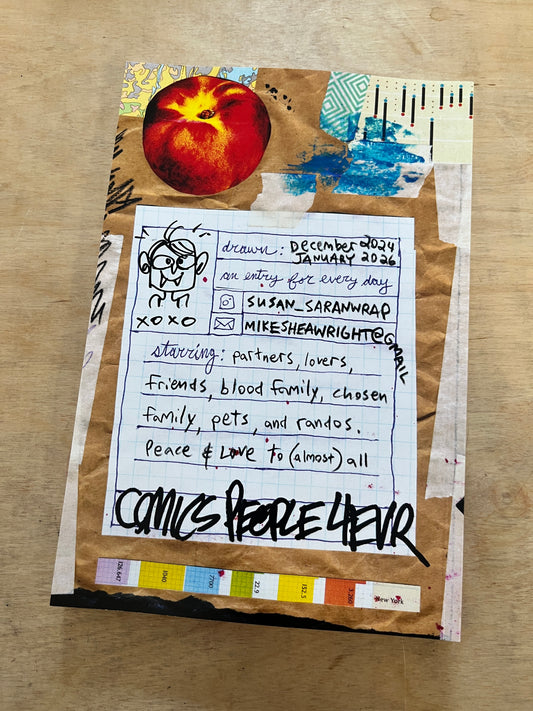 drawn: December 2024
JANUARY 2026
an entry for every day
SUSAN_SARANWRAP
MIKESHEAWRIGHT@GMAIL
XOXO
starring: partners, lovers,
friends, blood family, chosen
family, pets, and randos.
Peace & Love to (almost) all
COMICS PEOPLE 4EVR
126,647
1040
7700
22.9
152.5
3,268
New York